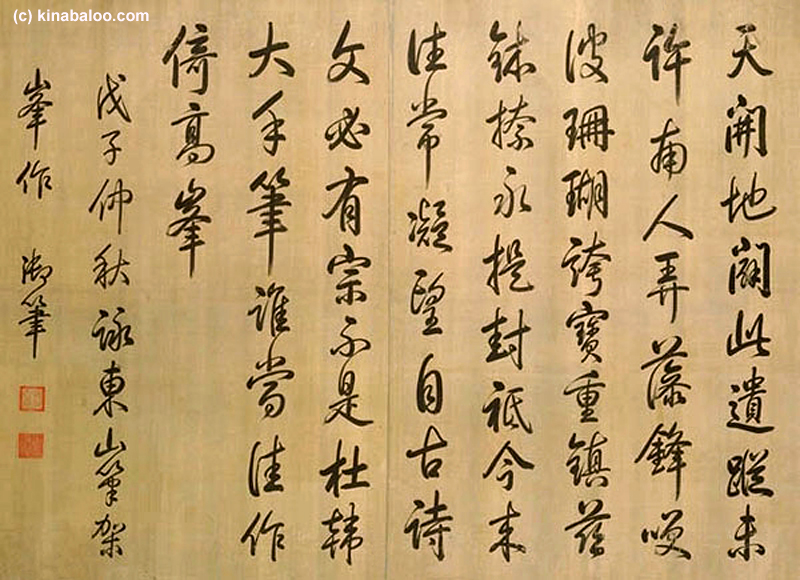 (c) kinabaloo.com
天開地闢此遺蹤未
許庸人弄藻鋒咲
彼珊瑚誇寶重鎮
捺永提封祗今來
往常凝望自古詩
文必有宗不是杜韓
大手筆誰當佳作
倚高峯
戊子仲秋詠東山筆架
峯作 御筆